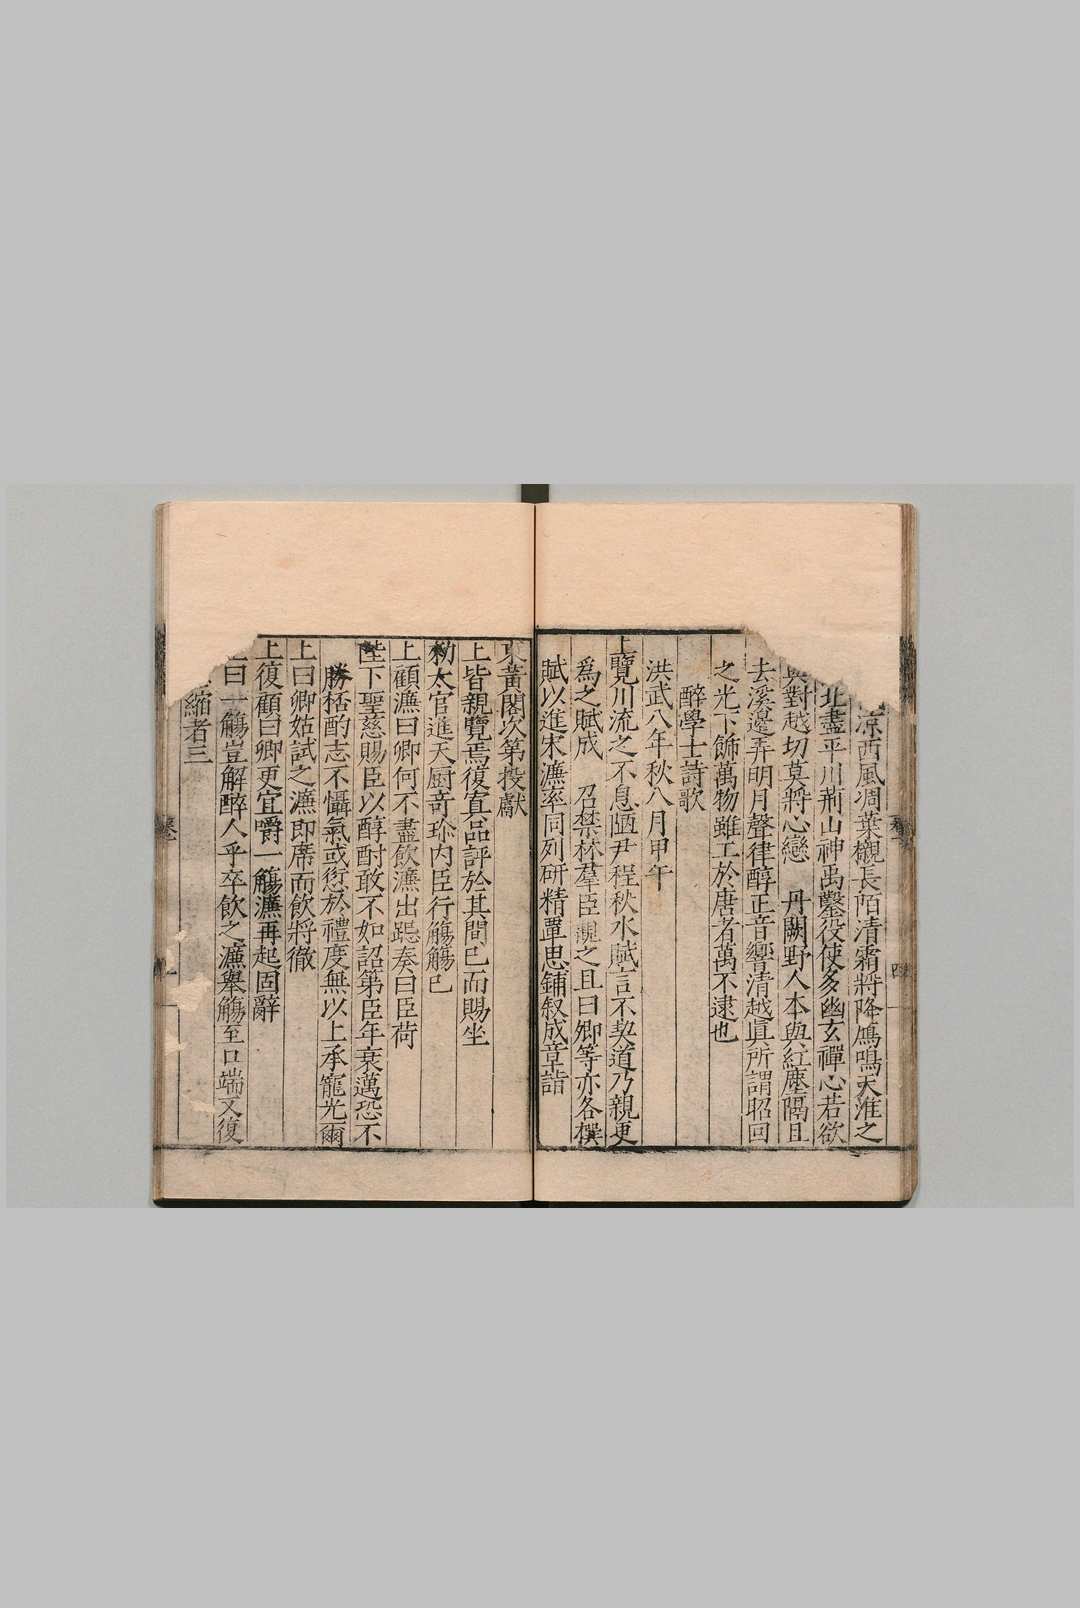 涼西風凋葉襯長陌清霜將降鴈鳴天淮之
北盡平川荊山神禹鑿役使多幽玄禪心若欲
與對越切莫將心戀　丹闕野人本與紅塵隔且
去溪邊弄明月聲律醇正音響清越眞所謂昭回
之光下飾萬物雖工於唐者萬不逮也
醉學士詩歌
洪武八年秋八月甲午
上覽川流之不息陋尹程秋水賦言不契道乃親更
爲之賦成　召禁林羣臣觀之且曰卿等亦各撰
賦以進宋濂率同列研精覃思鋪叙成章詣
東黃閣次第投獻
上皆親覽焉復寘品評於其間已而賜坐
勑太官進天厨竒珎内臣行觴觴已
上顧濂曰卿何不盡飲濂出跽奏曰臣荷
陛下聖慈賜臣以醇酎敢不如詔第臣年衰邁恐不
勝桮酌志不懾氣或愆於禮度無以上承寵光爾
上曰卿姑試之濂即席而飲將徹
上復顧曰卿更宜嚼一觴濂再起固辭
曰一觴豈解醉人乎卒飲之濂舉觴至口端又復
縮者三